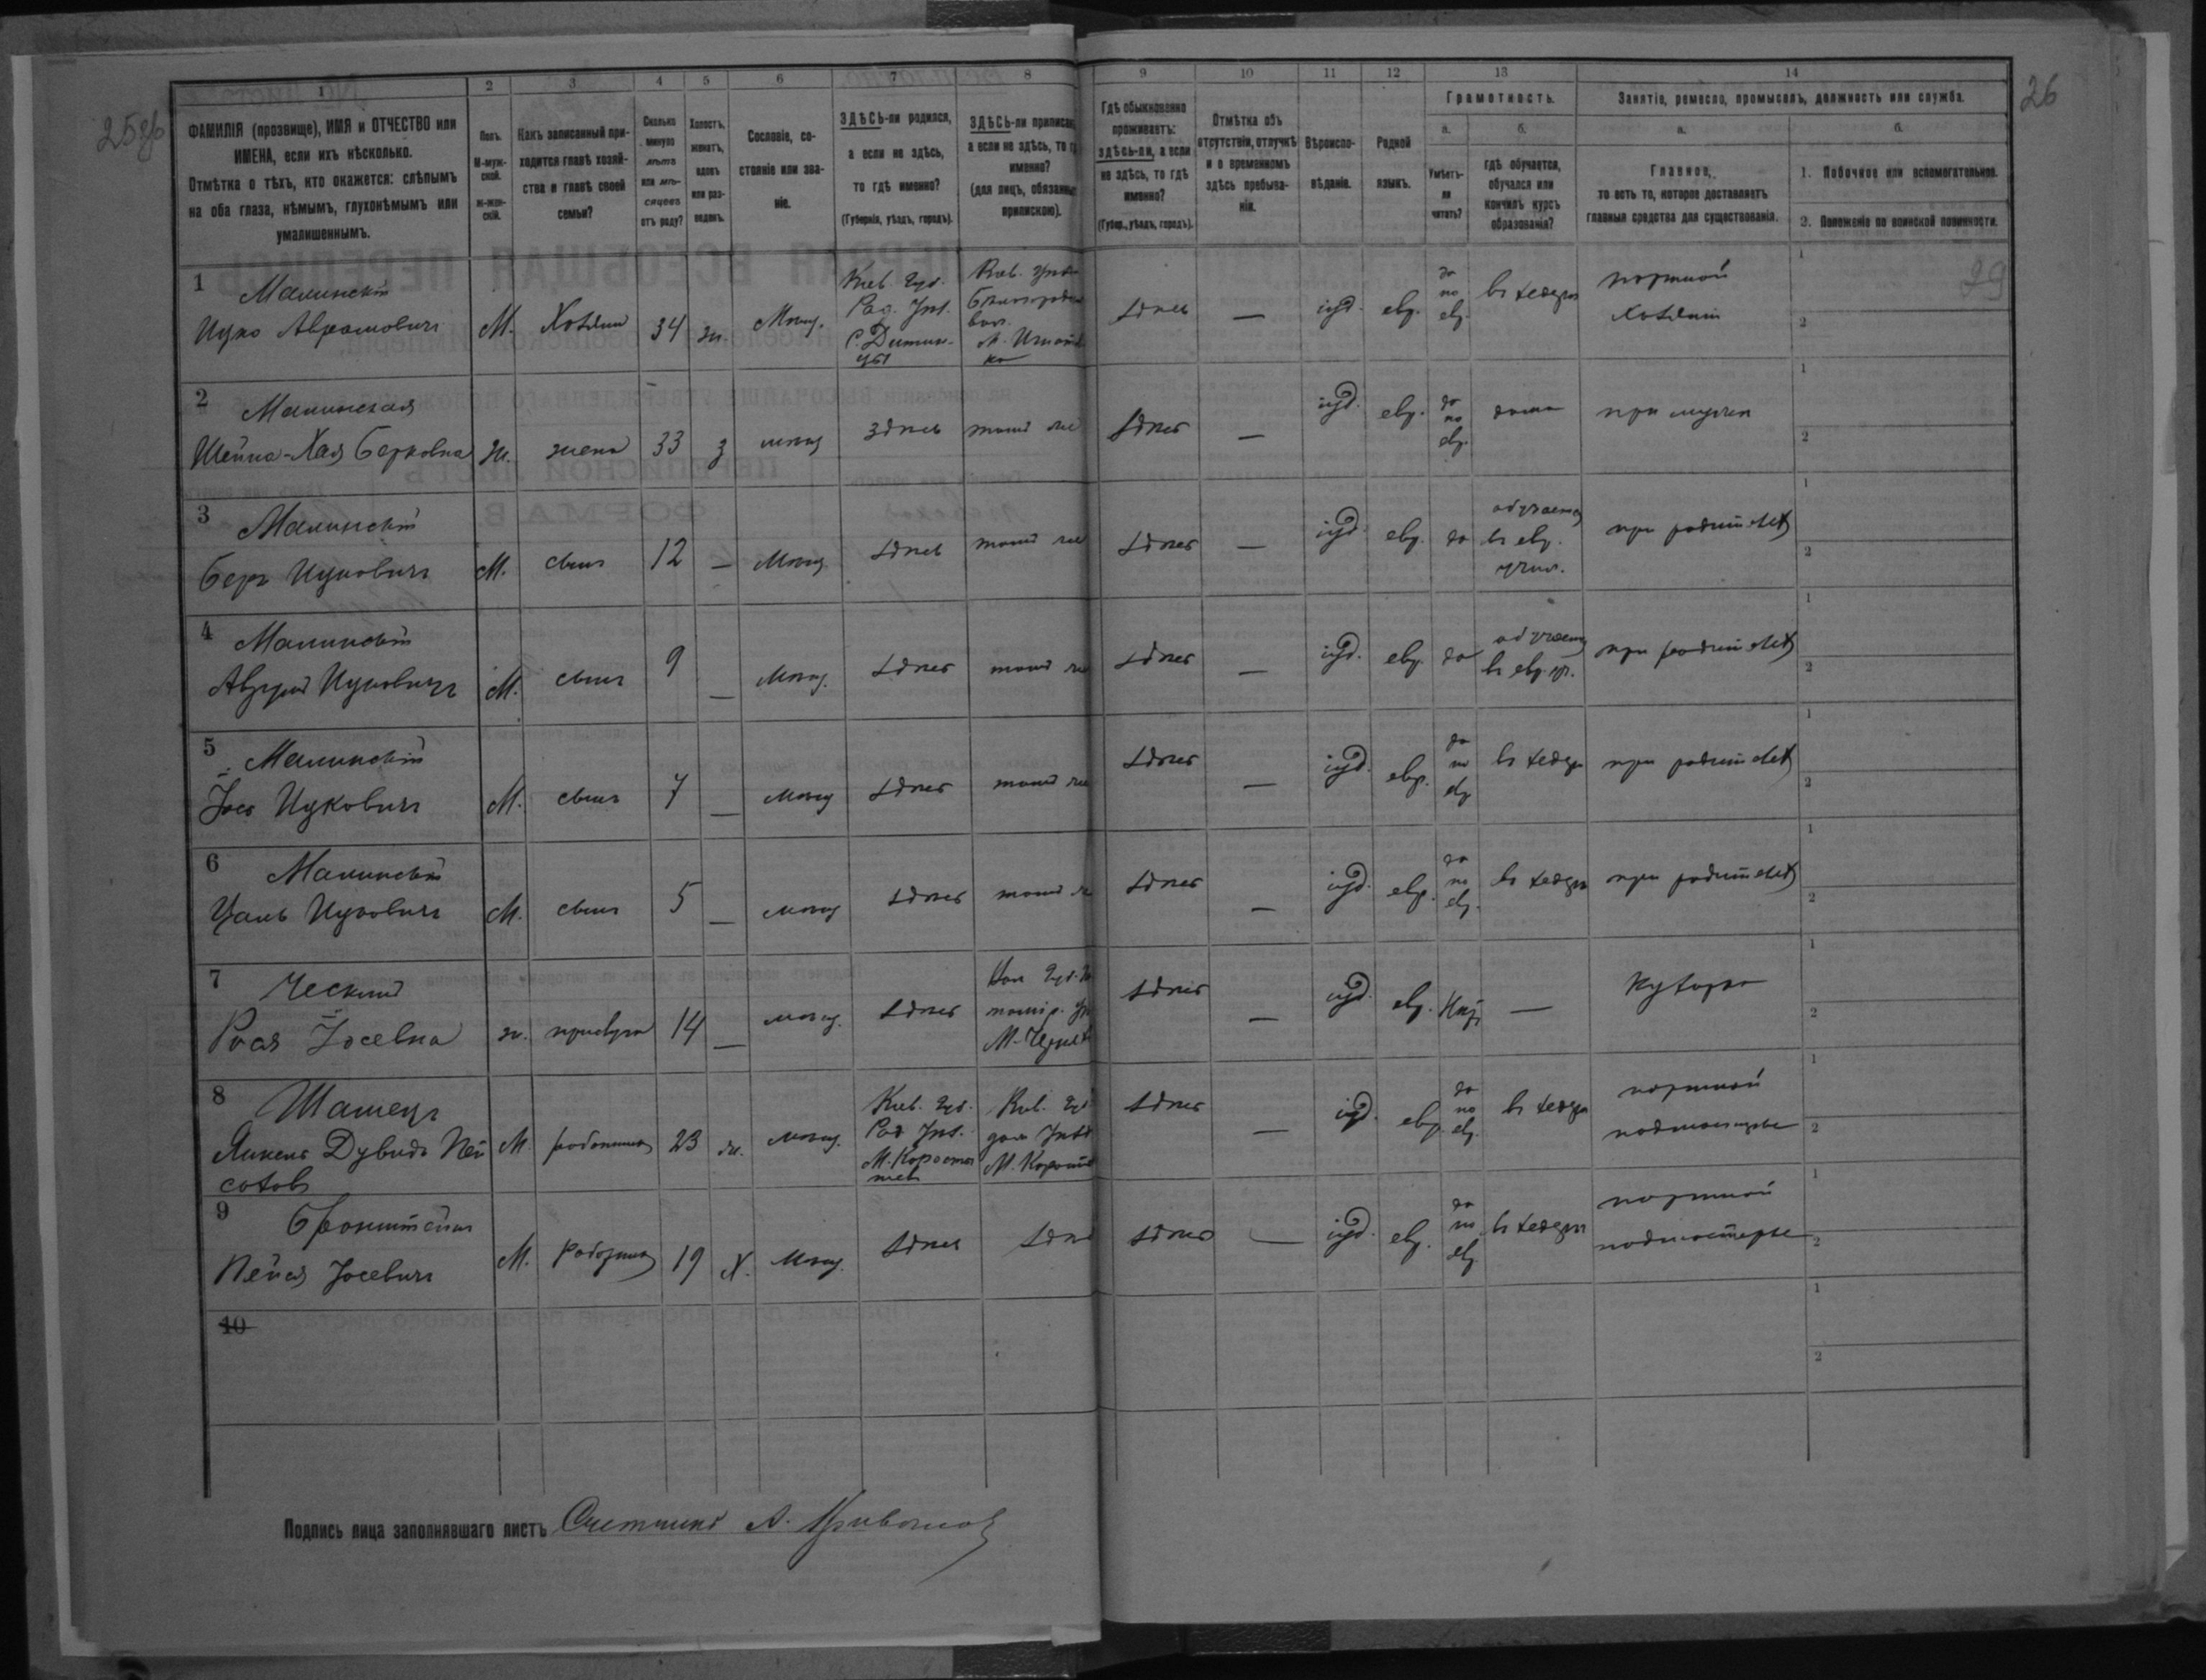 25об
26
29
1 2 3 4 5 6 7 8 9 10 11 12 13 14
ФАМИЛІЯ (прозвище), ИМЯ и ОТЧЕСТВО или
ИМЕНА, если ихъ нѣсколько.
Отмѣтка о тѣхъ, кто окажется: слѣпымъ
на оба глаза, нѣмымъ, глухонѣмымъ или
умалишеннымъ.
Полъ.
М-муж-
ской.
ж-жен-
скій.
Какъ записанный при-
ходится главѣ хозяй-
ства и главѣ своей
семьи?
Сколько
минуло
лѣтъ
или мѣ-
сяцевъ
отъ роду?
Холостъ,
женатъ,
вдовъ
или раз-
веденъ.
Сословіе, со-
стояніе или зва-
ніе.
ЗДѢСЬ-ли родился,
а если не здѣсь,
то гдѣ именно?
(Губернія, уѣздъ, городъ).
ЗДѢСЬ-ли приписанъ,
а если не здѣсь, то гдѣ
именно?
(для лицъ, обязанныхъ
припискою).
Гдѣ обыкновенно
проживаетъ:
здѣсь-ли, а если
не здѣсь, то гдѣ
именно?
(Губер., уѣздъ, городъ).
Отмѣтка объ
отсутствіи, отлучкѣ
и о временномъ
здѣсь пребыва-
ніи.
Вѣроиспо-
вѣданіе.
Родной
языкъ.
Грамотность.
а.
Умѣетъ-
ли
читать?
б.
гдѣ обучается,
обучался или
кончилъ курсъ
образованія?
Занятіе, ремесло, промыселъ, должность или служба.
а.
Главное,
то есть то, которое доставляетъ
главныя средства для существованія.
б.
1. Побочное или вспомогательное.
2. Положеніе по воинской повинности.
1 Малинскій
Ицко Аврамовичъ М. Хозяин 34 ж. Мѣщ.
Кіев. губ.
Рад. Уѣз.
Кіев.
М.
здѣсь — іуд. евр. да по евр. въ хедерѣ
портной
хозяин
2 Малинская
Шейна-Хая Берковна ж. жена 33 з мѣщ здѣсь тамъ же здѣсь — іуд. евр. да по евр. дома при мужѣ
3 Малинскій
Беръ Ицковичъ М. сынъ 12 — Мѣщ здѣсь тамъ же здѣсь — іуд. евр. да
обучается
въ евр.
учил.
при родителяхъ
4 Малинскій
Ицковичъ М. сынъ 9 — Мѣщ. здѣсь тамъ же здѣсь — іуд. евр. да
обучается
въ евр. уч.
при родителяхъ
5 Малинскій
Іось Ицковичъ М. сынъ 7 — мѣщ здѣсь тамъ же здѣсь — іуд. евр. да по евр въ хедерѣ при родителяхъ
6 Малинскій
Ицковичъ М. сынъ 5 — мѣщ здѣсь тамъ же здѣсь — іуд. евр. да по евр. въ хедерѣ при родителяхъ
7
Іосевна ж. прислуга 14 — мѣщ. здѣсь
Вол губ.
М.
здѣсь — іуд. евр. нѣтъ — Кухарка
8
Дувидъ М работникъ 23 ж. мѣщ.
Кіев. губ.
Рад Уѣз.
М. Коросты
шев
Кіев. губ
М.
здѣсь — іуд. евр. да по евр. въ хедерѣ
портной
подмастерье
9 Бронштейнъ
Пейся Іосевичъ М. Работник 19 х. Мѣщ. здѣсь здѣсь здѣсь — іуд. евр. да по евр. въ хедерѣ
портной
подмастерье
10
Подпись лица заполнявшаго листъ Счетчикъ А.